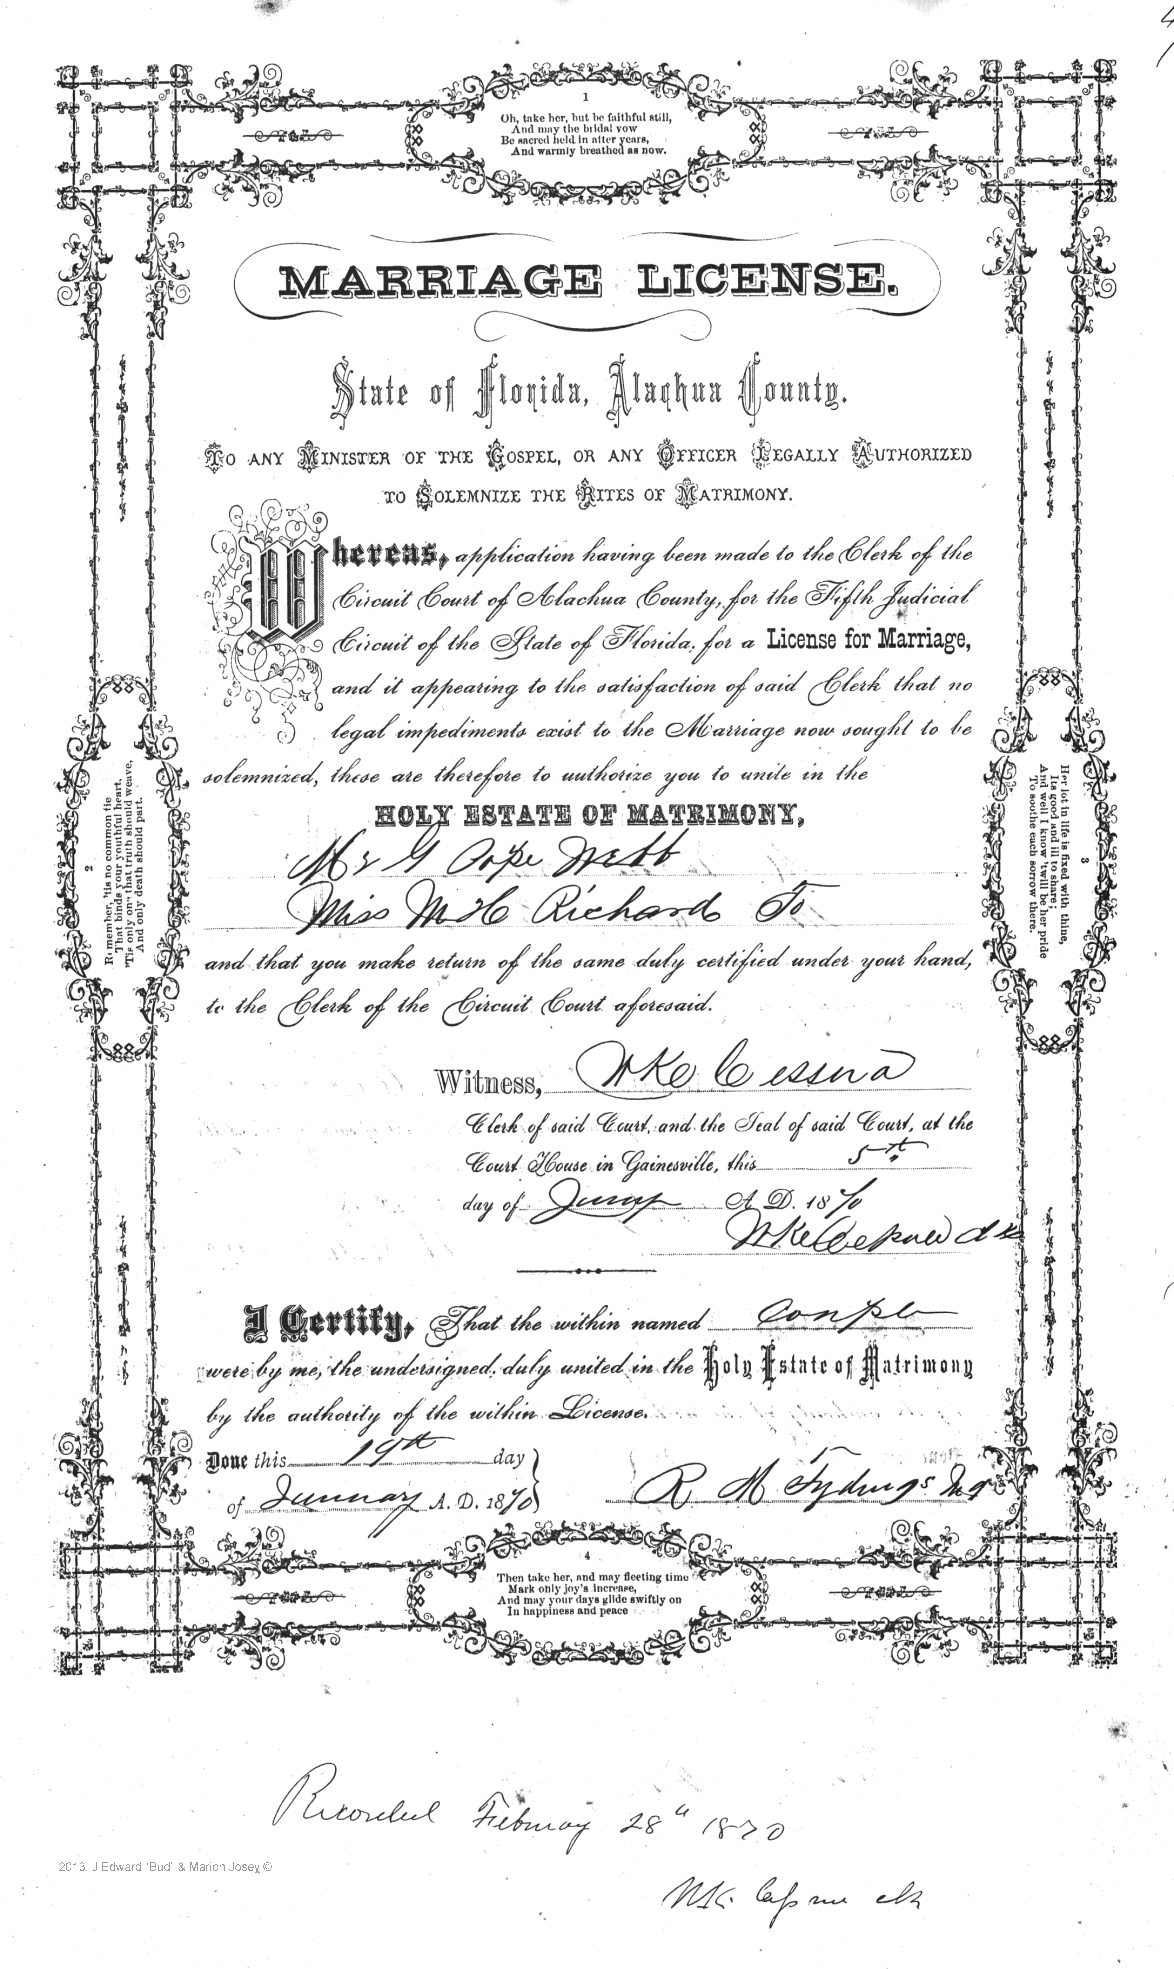 1
Oh, take her, but be faithful still,
And may the bridal vow
Be sacred held in after years,
And warmly breathed as now.
MARRIAGE LICENSE.
State of Florida, Alachua County.
TO ANY MINISTER OF THE GOSPEL, OR ANY OFFICER LEGALLY AUTHORIZED
TO SOLEMNIZE THE RITES OF MATRIMONY.
Whereas, application having been made to the Clerk of the
Circuit Court of Alachua County, for the Fifth Judicial
Circuit of the State of Florida, for a License for Marriage,
and it appearing to the satisfaction of said Clerk that no
legal impediments exist to the Marriage now sought to be
solemnized, these are therefore to authorize you to unite in the
HOLY ESTATE OF MATRIMONY,
Mr G Pope Webb
Miss M C Richard To
and that you make return of the same duly certified under your hand,
to the Clerk of the Circuit Court aforesaid.
Witness, W K Cessna
Clerk of said Court, and the Seal of said Court, at the
Court House in Gainesville, this 5th
day of January A. D. 1870
W K Cessna Clk
I Certify, That the within named Couple
were by me, the undersigned, duly united in the Holy Estate of Matrimony
by the authority of the within License.
Done this 19th day
of January A. D. 1870
R M Tydings Mg
2
Remember, 'tis no common tie
That binds your youthful heart,
'Tis only one that truth should weave,
And only death should part.
3
Her lot in life is fixed with thine,
Its good and ill to share;
And well I know 'twill be her pride
To soothe each sorrow there.
4
Then take her, and may fleeting time
Mark only joy's increase,
And may your days glide swiftly on
In happiness and peace
Recorded February 28th 1870
2013. J Edward 'Bud' & Marion Josey ©
W K. Cessna clk